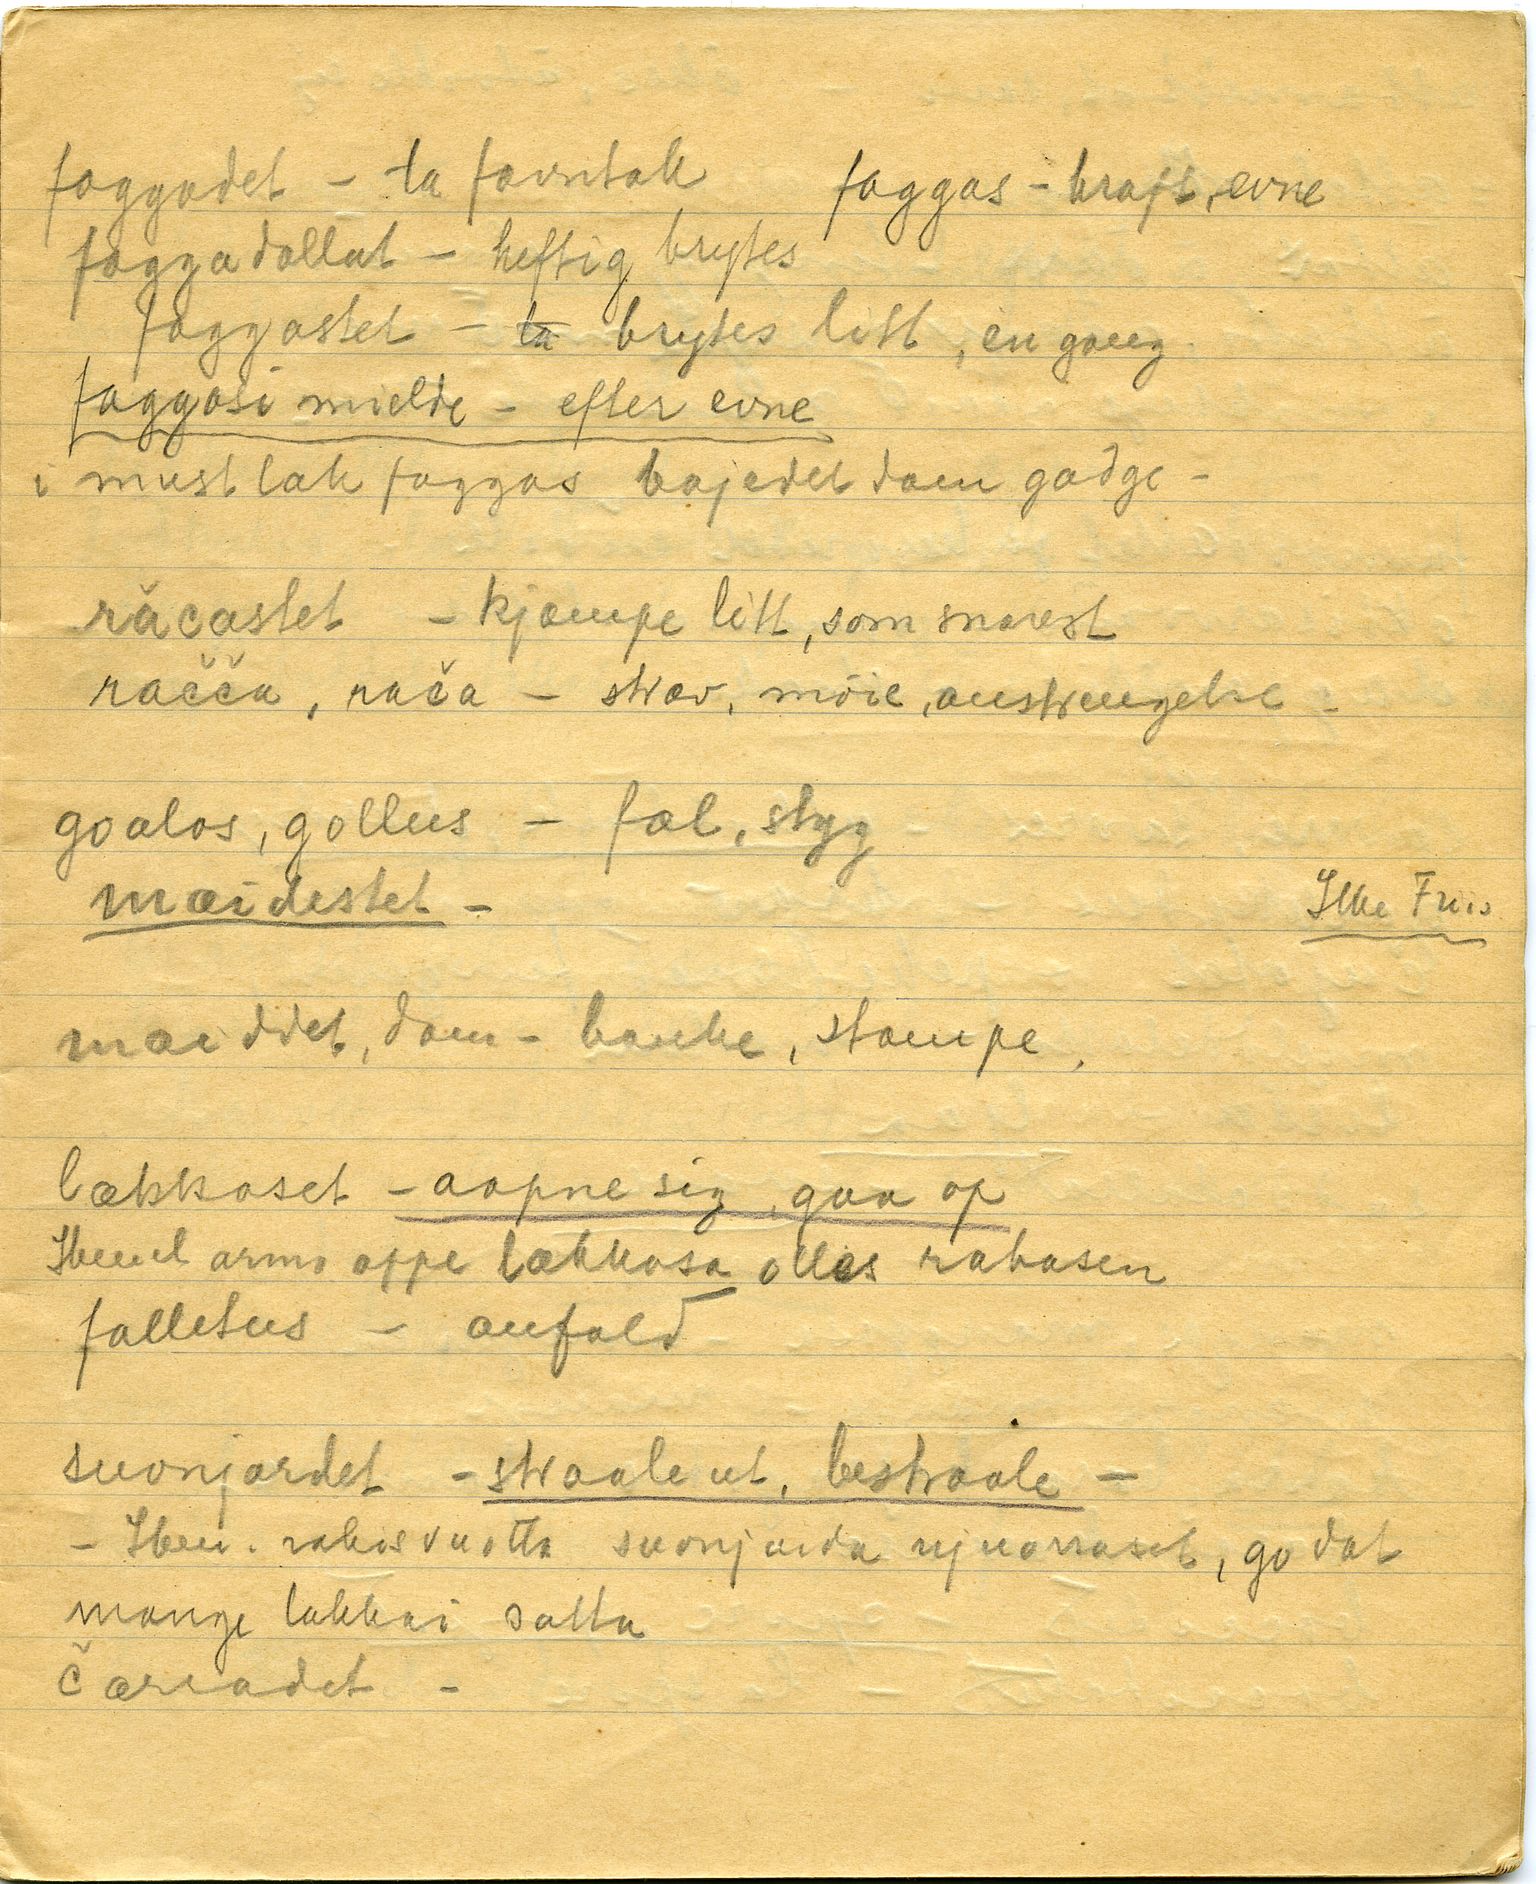 faggadet - ta favntak faggas - kraft, evne
faggadallat - heftig brytes
faggastet - ta brytes litt, en gang
faggasi mielde - efter evne
i must lak faggas bajedet dam gadge -
răcastet - kjæmpe litt, som snarest
račča, rača - stræv, möie, anstrengelse -
goalos, gollus - fæl, styg
mæidestet - Ikke Friis
mæiddet, dam - banke, stampe.
lækkaset - aapne sig, gaa op
Ibmel armo appe lækkasa olles rabasen
falletus - anfald
suonjardet - straale ut, bestraale -
- Ibm. rakisvuotta suonjarda njuorraset, go dat
mange lakkai satta
čærradet -